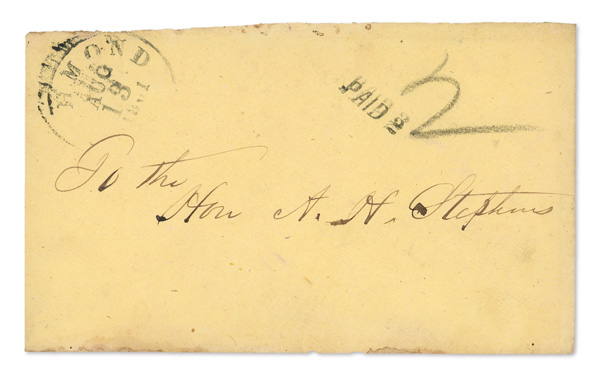 MOND
AUG
13
PAID 2
2
To the
Hon A. H. Stephens